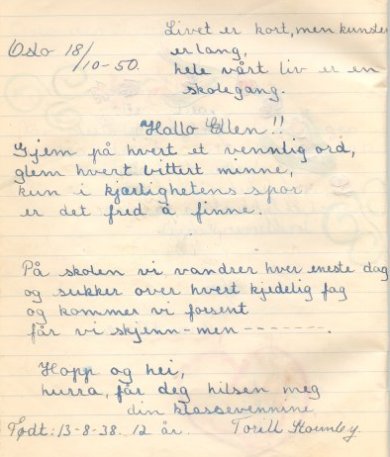 Livet er kort, men kunsten
er lang,
hele vårt liv er en
skolegang.
Oslo 18/10-50.
Hallo Ellen!!
Gjem på hvert et vennlig ord,
glem hvert bittert minne,
kun i kjærlighetens spor
er det fred å finne.
På skolen vi vandrer hver eneste dag
og sukker over hvert kjedelig fag
og kommer vi forsent
får vi skjenn-men-------.
Hopp og hei,
hurra, får deg hilsen meg
din klassevennine
Født: 13-8-38. 12 år. Torill